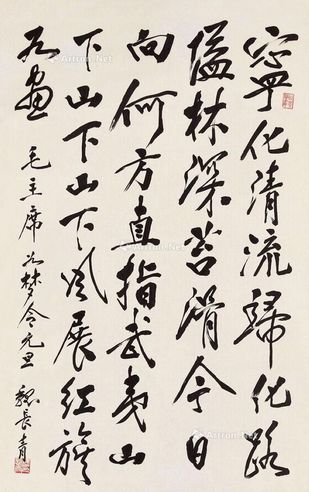 寧化清流歸化路
隘林深苔滑今日
向何方直指武夷山
下山下山下风展红旗
如畫 毛主席如梦令元旦 魏長青
Artron.Net